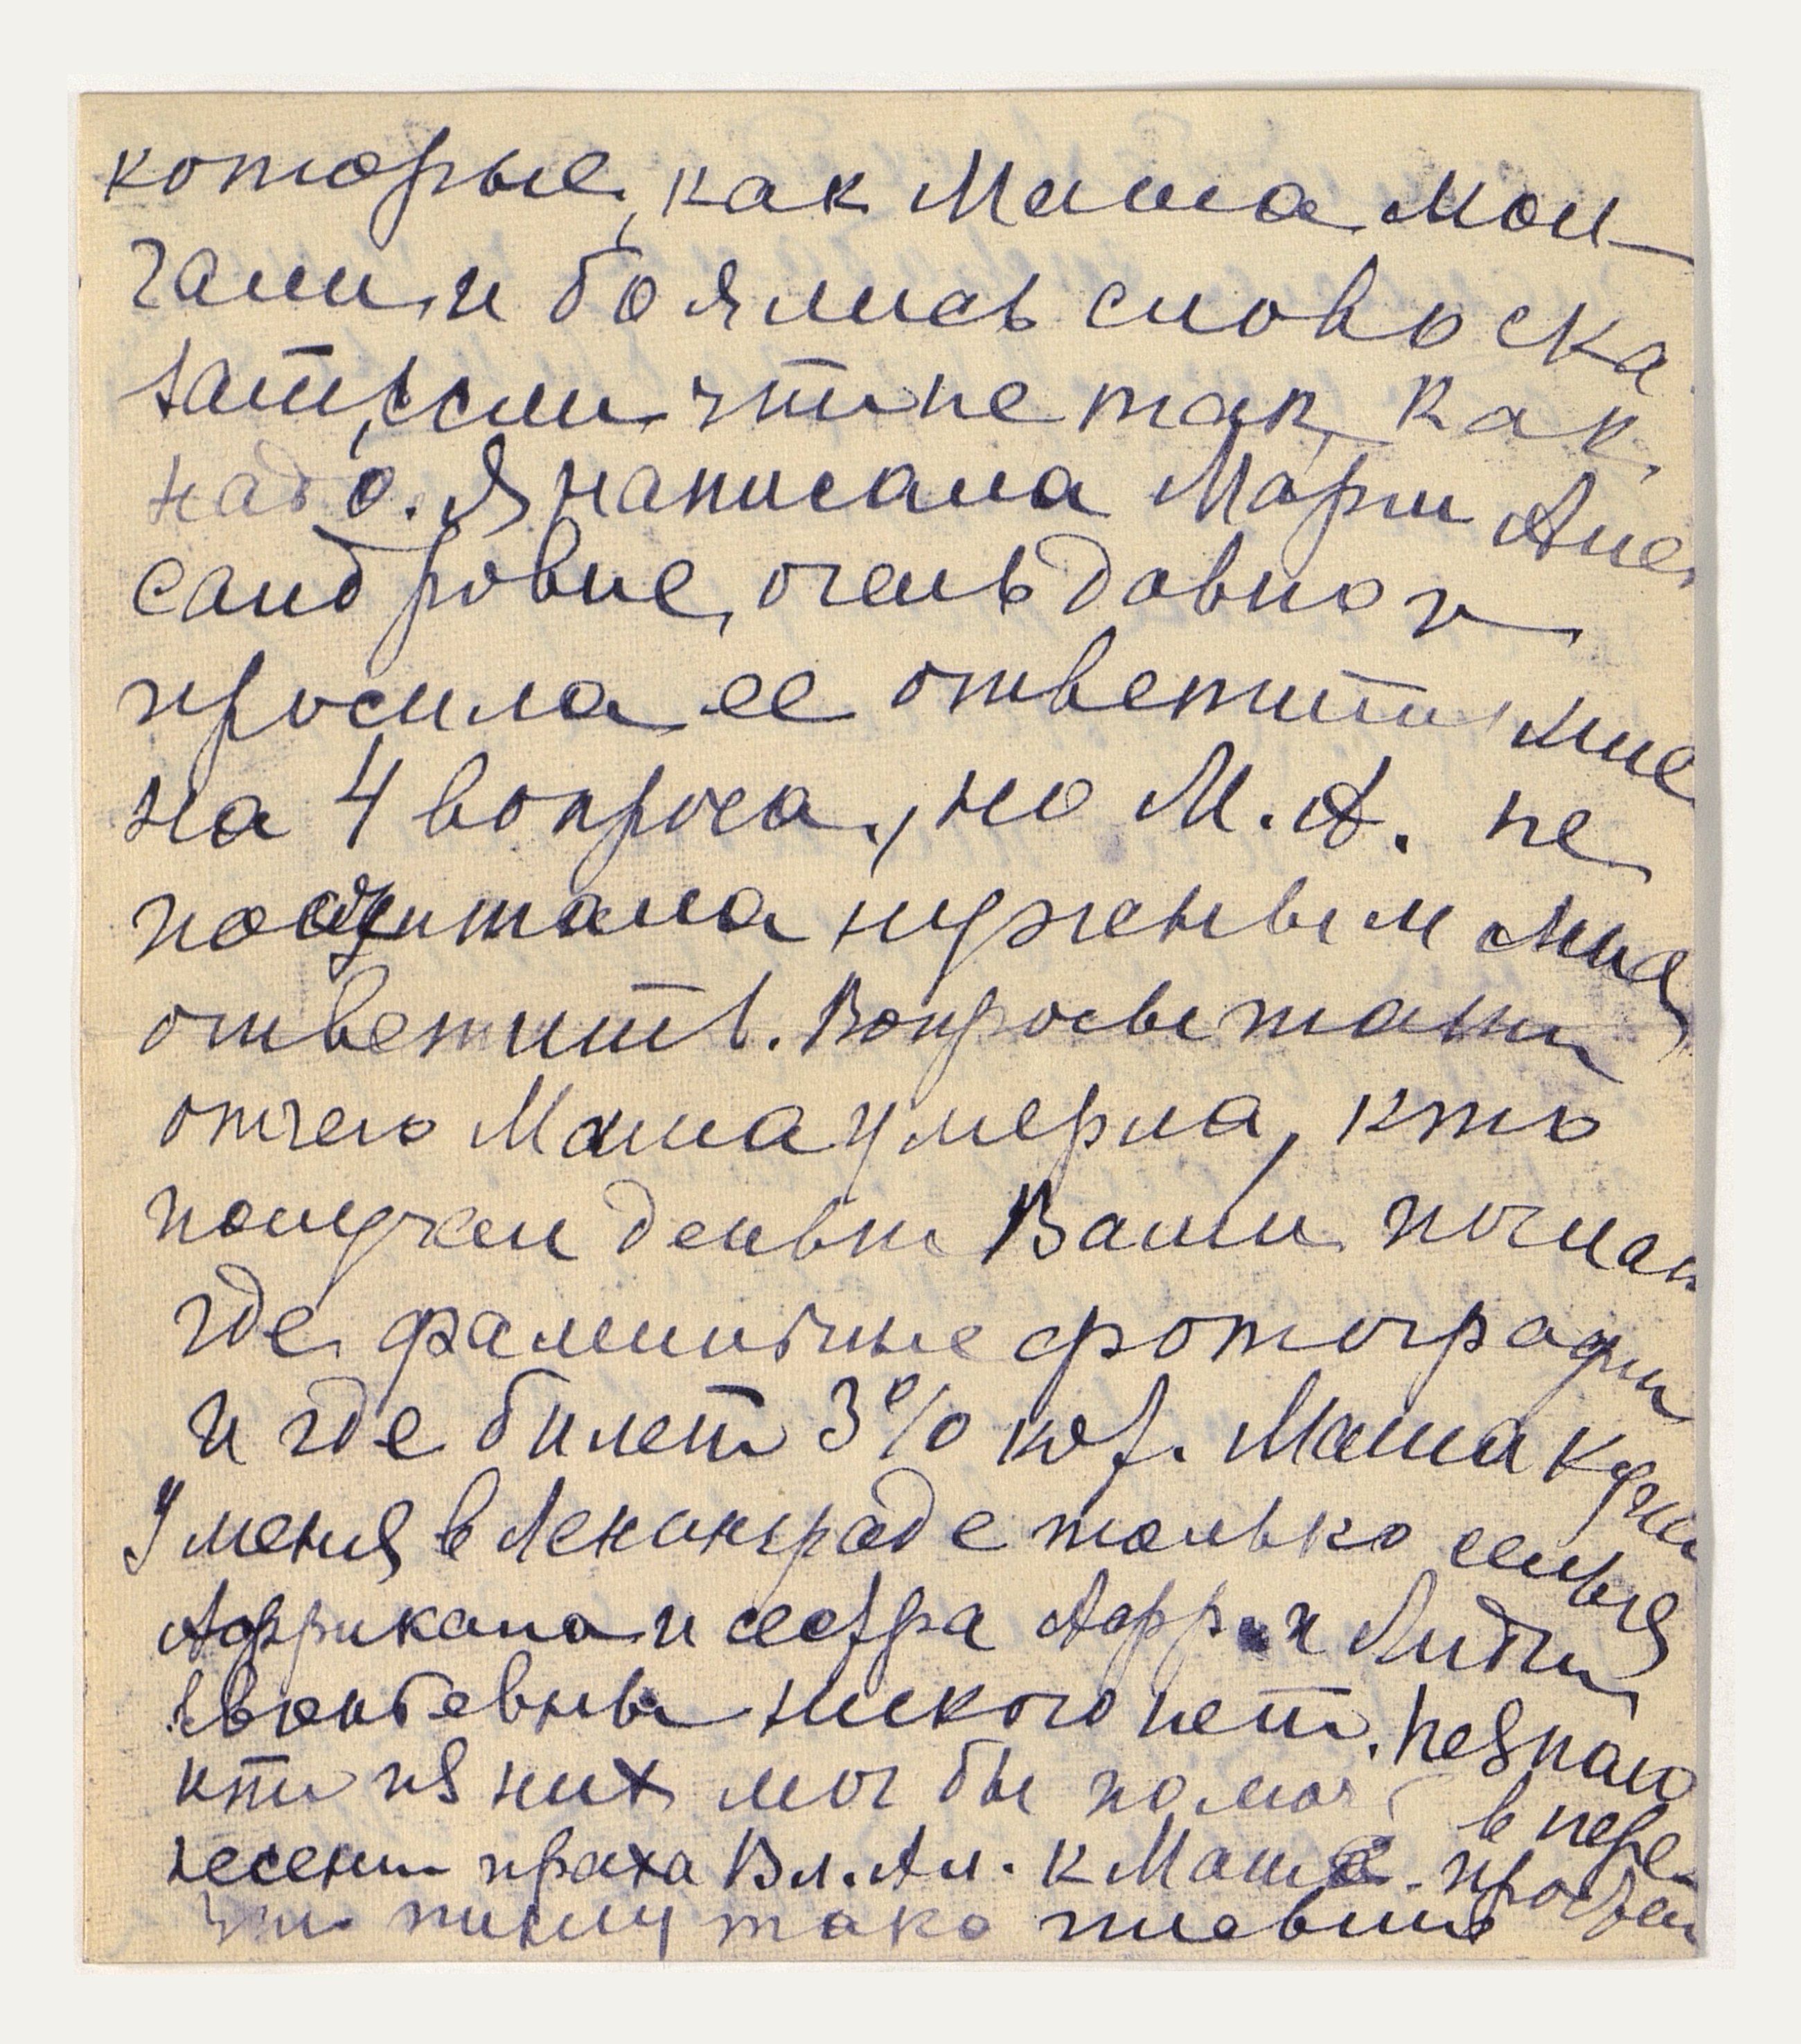 которые, как Маша мол-
чали и боялись слово ска
зать, если что не так, как
надо. Я написала Марии Алек
сандровне, очень давно и
просила ее ответить мне
на 4 вопроса, но М. А. не
посчитала нужным мне
ответить. Вопросы таки
отчего Маша умерла, кто
получал деньги Ваши
где фамильные фотографии
и где билет 3% кот. Маша купи
У меня в Ленинграде только семья
Африкана и сестра Афр. и Лидии
никого нет. Не знаю
кто из них мог бы помочь в пере-
несении праха Вл. Ал. к Маше. простите
что пишу тако